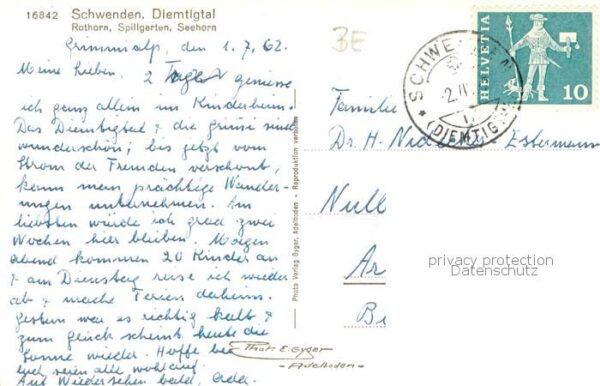 16842 Schwenden, Diemtigtal
Rothorn, Spillgerten, Seehorn
Grimmialp, den 1. 7. 62.
Meine Lieben. 2 Tage geniesse
ich ganz allein im Kinderheim.
Das Diemtigtal & die grüne sind
wunderschön; bis jetzt vom
Strom der Fremden verschont,
kann man prächtige Wander-
ungen unternehmen. Am
liebsten würde ich grad zwei
Wochen hier bleiben. Morgen
abend kommen 20 Kinder an
& am Dienstag reise ich wieder
ab & mache Ferien daheim.
Gestern war es richtig kalt &
zum glück scheint heute die
Sonne wieder. Hoffe bei
Euch seien alle wohlauf.
Auf Wiedersehen bald,
Photo Verlag Gyger, Adelboden - Reproduktion verboten
BE
SCHWENDEN
2. II
(DIEMTIG
HELVETIA
10
Familie
Dr. H. Nide Estermann
Null
Ar
Bi
privacy protection
Datenschutz
Phot. E. Gyger
Adelboden